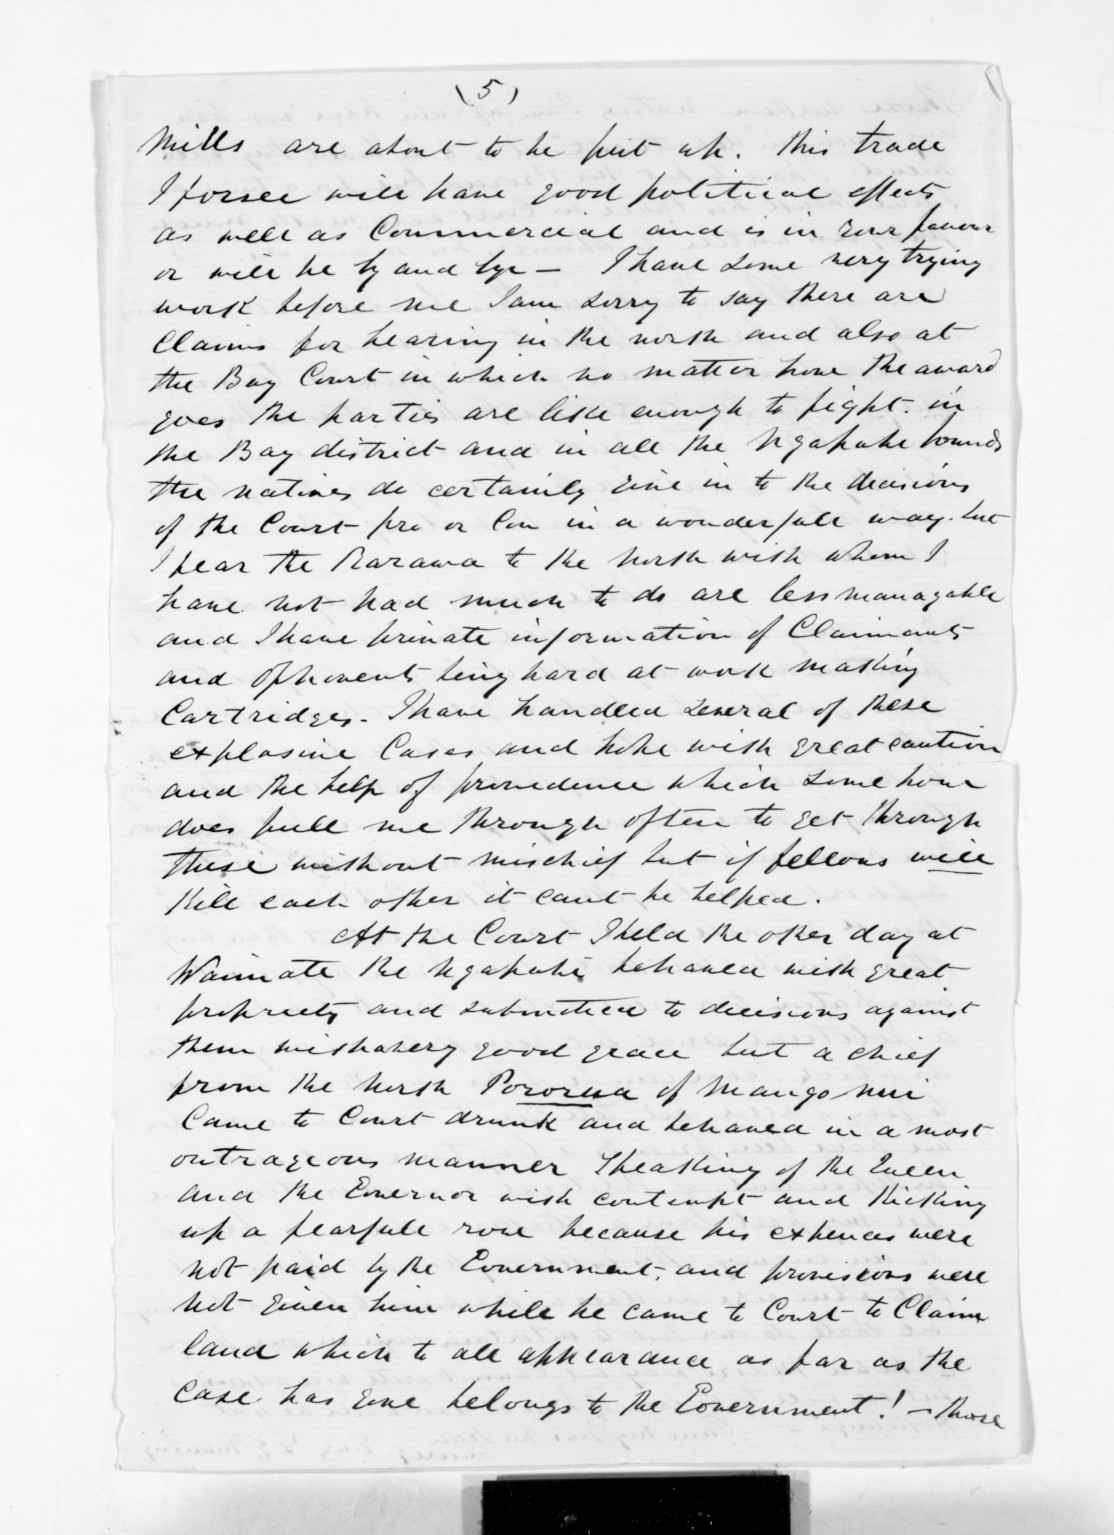 (5)
Mills are about to be put up. This trade
I forsee will have good political effects
as well as Commercial and is in your favour
or will be by and bye — I have some very trying
work before me I am sorry to say there are
Claims for hearing in the north and also at
the Bay Court in which no matter how the award
goes the parties are like enough to fight. in
the Bay district and in all the Ngapuhi bounds
the natives do certainly give in to the decisions
of the Court pro or Con in a wonderfull way. but
I fear the Rarawa to the North with whom I
have not had much to do are less managable
and I have private information of Claimants
and Opponents being hard at work making
Cartridges. I have handled several of these
explosive Cases and hope with great caution
and the help of providence which some how
does pull me through often to get through
these without mischief but if fellows will
Kill each other it cant be helped.
At the Court I held the other day at
Waimate the Ngapuhi behaved with great
propriety and submitted to decisions against
them with a very good grace but a chief
from the North Pororua of Mangonui
Came to Court drunk and behaved in a most
outrageous manner Speaking of the Queen
and the Governor with contempt and Kicking
up a fearfull row because his expences were
not paid by the Government. and provisions were
not given him while he came to Court to Claim
land which to all appearance as far as the
case has gone belongs to the Government! — those